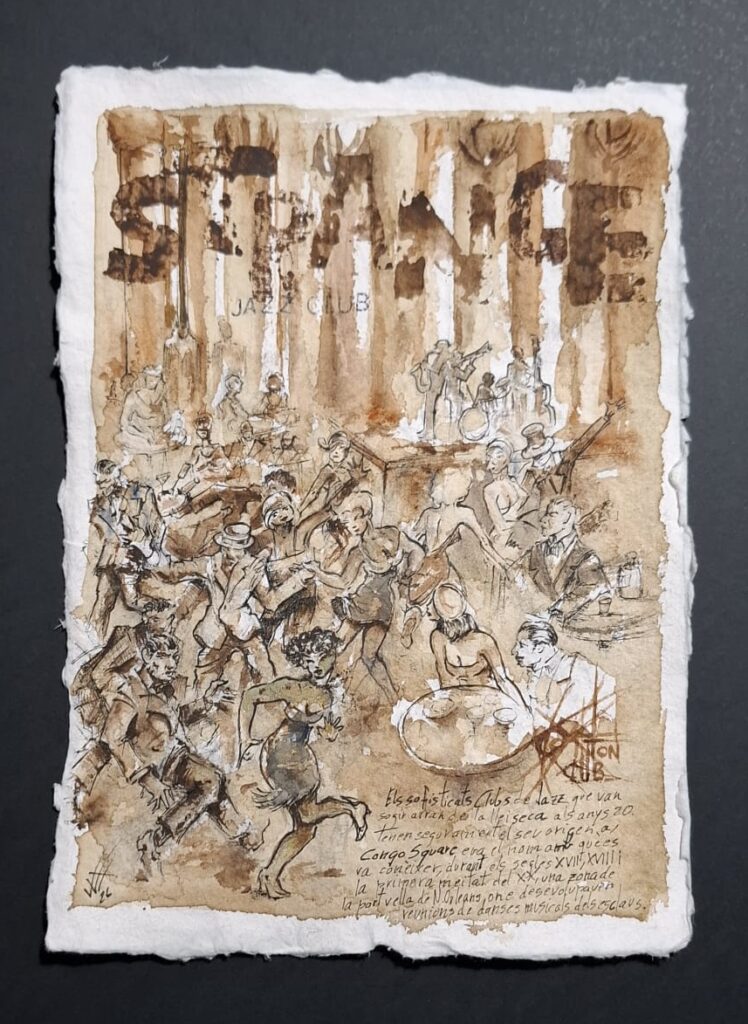 STRANGE
JAZZ CLUB
COTTON
CLUB
Els sofisticats Clubs de Jazz que van
sogir arran de la llei seca als anys 20.
tenen segurament el seu origen a
Congo Square era el nom amb que es
va coneixer, durant els segles XVII, XVIII i
la primera meitat del XX, una zona de
la part vella de N. Orleans, on es desevolupaven
reunions de danses musicals dels esclaus.